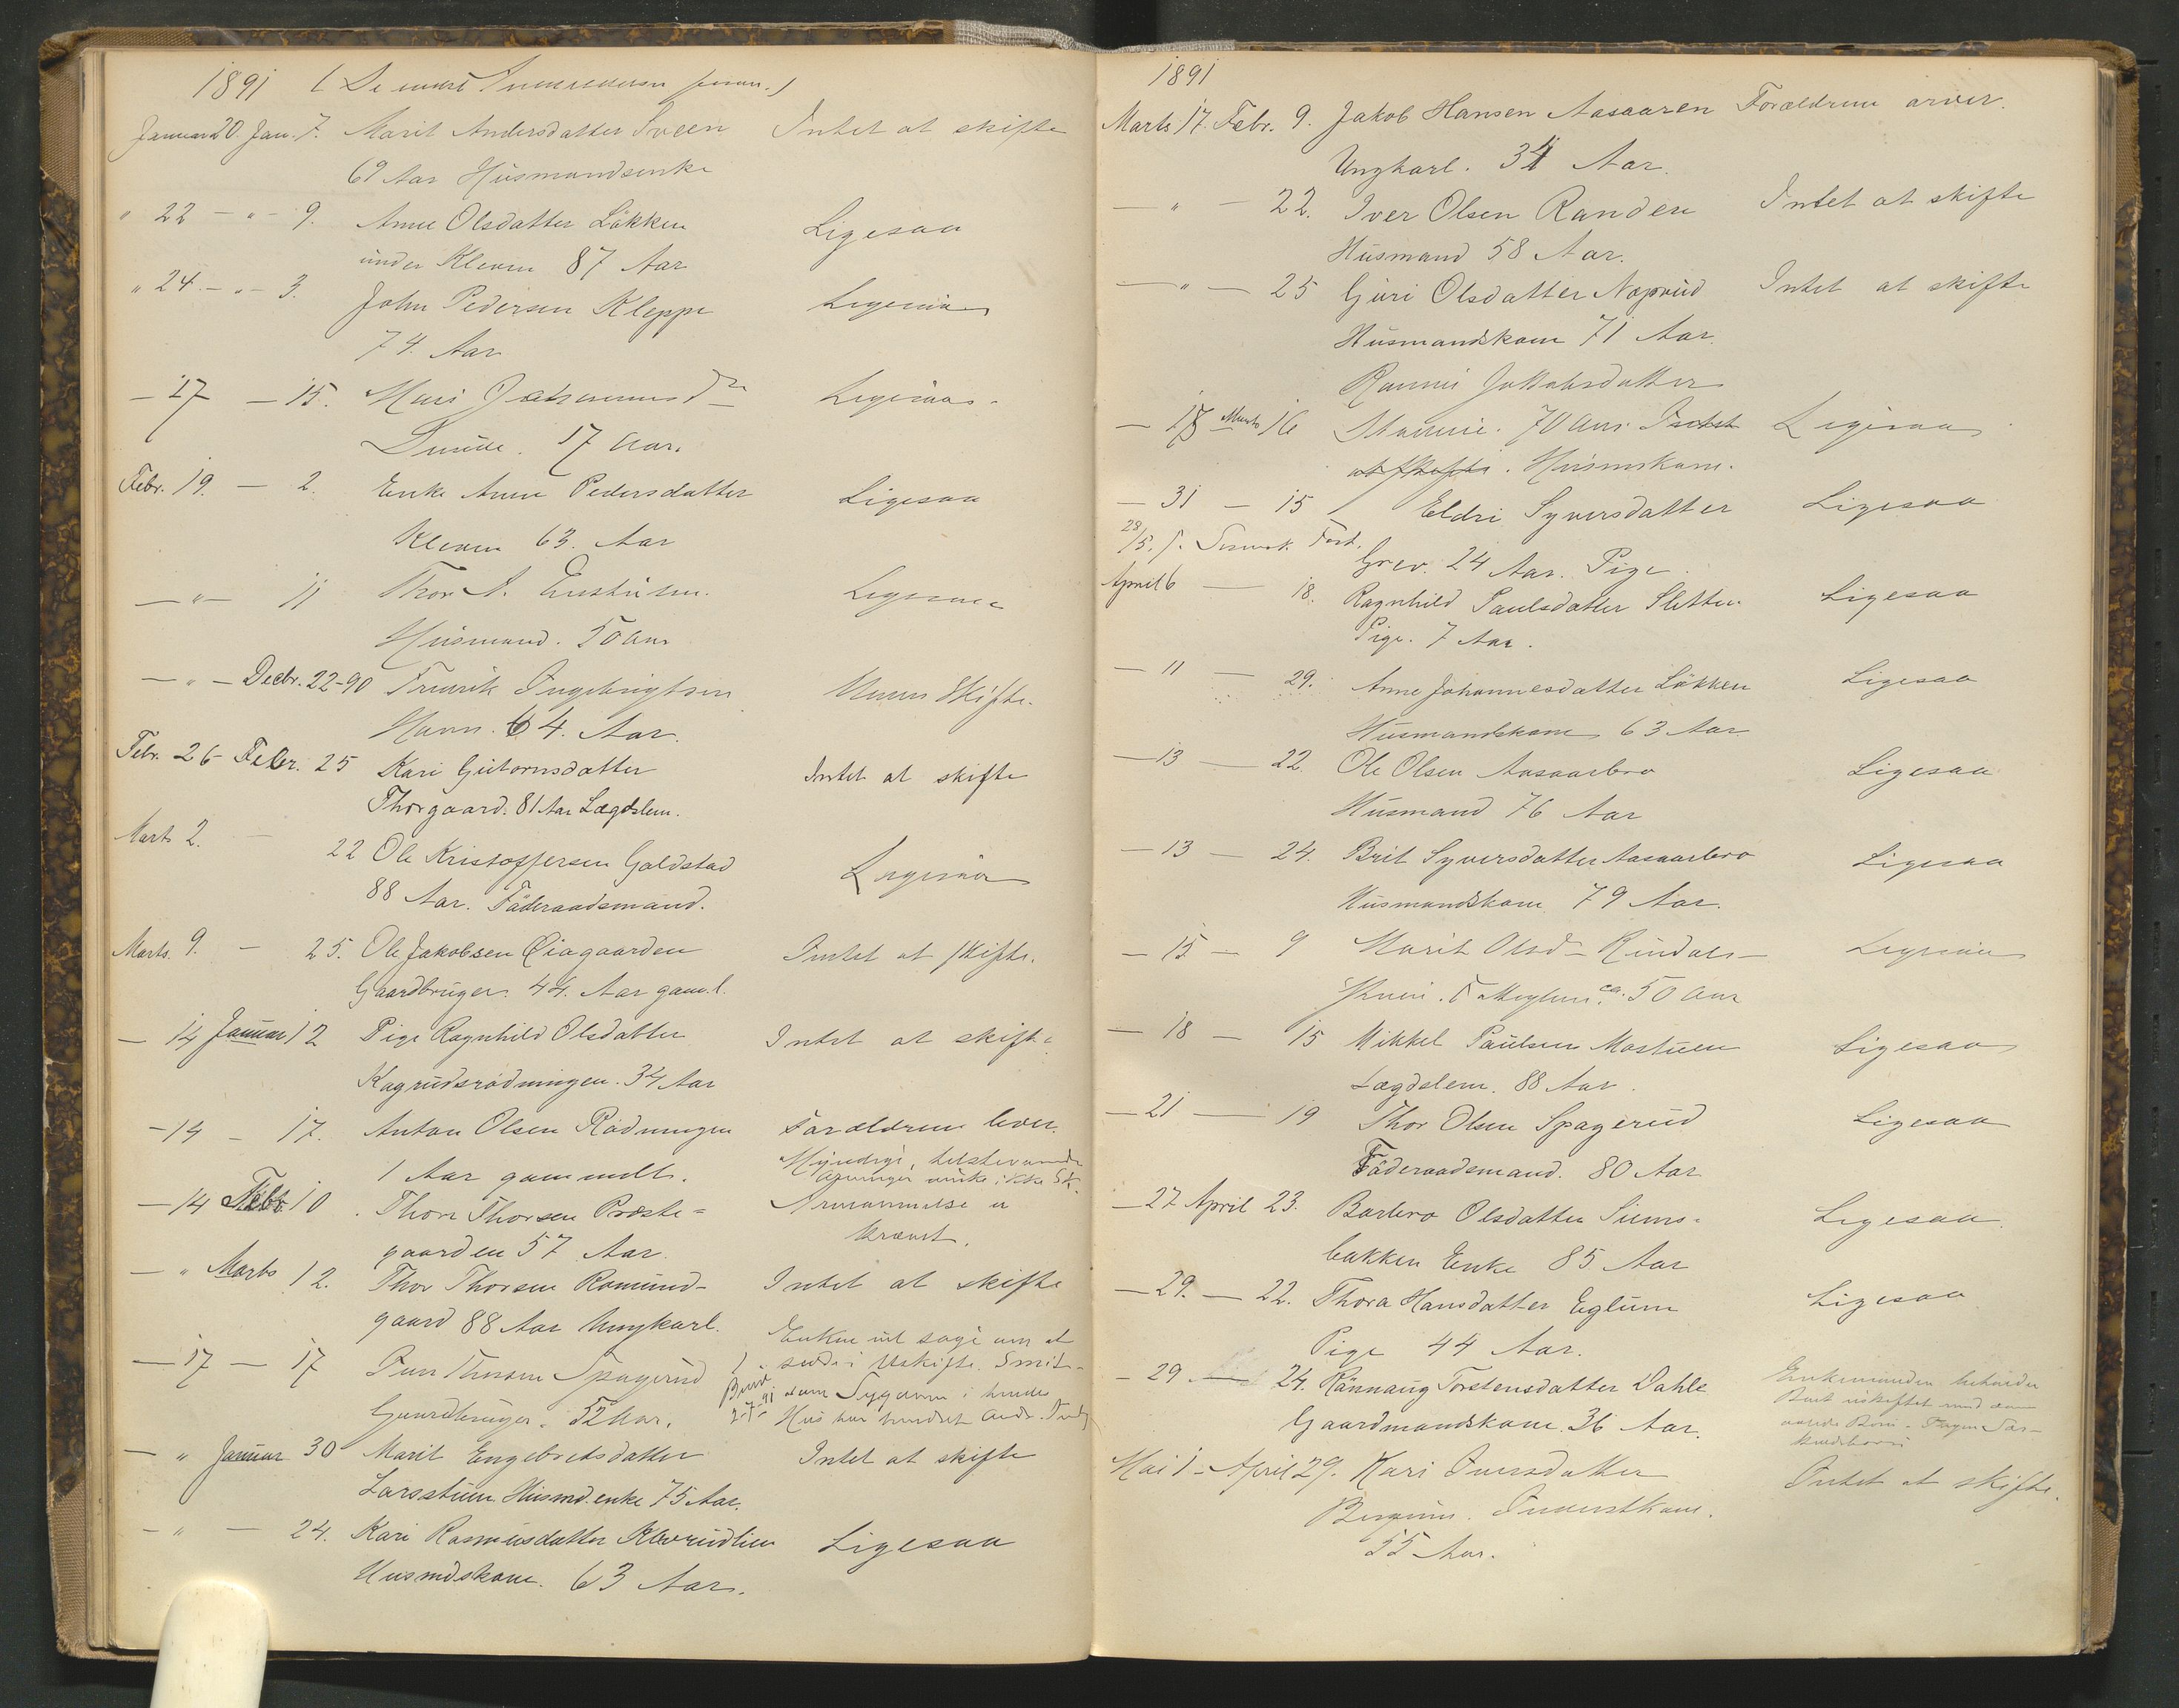 1891
Januar 20. Jan. 7. Marit Andersdatter Sveen Intet at skifte
69 Aar Husmandsenke
" 22 - " - 9. Anne Olsdatter Løkken Ligesaa
under Kleven 87 Aar
" 24. - " - 3. John Pedersen Kleppe Ligesaa
74. Aar
- 17 - 15. Mari Ligesaa.
17 Aar.
Febr. 19. - 2. Enke Anne Pedersdatter Ligesaa
Kleven 63. Aar
- " - 11 Thor Ligesaa
Husmand. 50 Aar
- " - Decbr. 22-90 Fredrik Ingebrigtsen Skifte.
64. Aar.
Febr. 26 - Febr. 25 Kari Gutormsdatter Intet at skifte
Thorgaard. 81 Aar Lægdslem.
Marts 2. - 22 Ole Kristoffersen Galdstad Ligesaa
88 Aar. Föderaadsmand.
Marts. 9. - 25. Ole Jakobsen Øiagaarden Intet at skifte.
Gaardbruger. 44. Aar gaml.
- 14 Januar 12 Pige Ragnhild Olsdatter Intet at skifte
Kagrudsrødningen. 34 Aar
- 14 - 17. Anton Olsen Rødningen Forældrene lever.
1 Aar gammelt.
Myndige, tilstedeværende
Arvinger ønske ikke Sk.
- 14 Febr. 10. Thore Thorsen Præste=
gaarden 57 Aar.
krævet.
- " Marts 12. Thor Thorsen Romund- Intet at skifte
gaard 88 Aar Ungkarl.
- 17 - 17 Spagerud
Enken vil søge om at
sidde i Uskifte.
som Sygdom i hendes
Gaardbruger. 52 Aar.
Hus har hindret
- " Januar 30 Marit Engebretsdatter Intet at skifte
Larsstuen Husmd.enke 75 Aar.
- " - 24. Kari Rasmusdatter Klevrudlien Ligesaa
Husmdskone. 63 Aar.
1891
Marts 17. Febr. 9. Jakob Hansen Aasaaren Forældrene arver.
Ungkarl. 34 Aar.
- " - 22. Iver Olsen Randen Intet at skifte
Husmand 58 Aar.
- " - 25 Guri Olsdatter Noprud Intet at skifte
Husmandskone 71 Aar.
Jakobsdatter
- 18 Marts 16 70 Aar. Intet Ligesaa
at skifte. Husmskone.
- 31 - 15 Eldri Syversdatter Ligesaa
28/5. Fort.
Grev. 24 Aar. Pige.
April 6 - 18. Ragnhild Paulsdatter Sletten Ligesaa
Pige. 7 Aar.
- 11 - 29. Anne Johannesdatter Løkken Ligesaa
Husmandskone 63 Aar
- 13 - 22. Ole Olsen Aasaarbro Ligesaa
Husmand 76 Aar
- 13 - 24. Brit Syversdatter Aasaarbro Ligesaa
Husmandskone 79 Aar.
- 15 - 9 Marit Olsd- Rindals- Ligesaa
ca. 50 Aar
- 18 - 15 Mikkel Paulsen Mostuen Ligesaa
Lægdslem. 88 Aar.
- 21 - 19 Thor Olsen Spagerud Ligesaa
Föderaadsmand. 80 Aar
- 27 April 23. Barbro Olsdatter Ligesaa
bakken Enke 85 Aar
- 29. - 22. Thora Hansdatter Eglum Ligesaa
Pige 44 Aar.
- 29 - 24. Rønnaug Torstensdatter Dahle
Enkemanden beholder
Boet uskiftet med
Gaardmandskone. 36 Aar.
Børn. Ingen Sær-
kuldsbørn
Mai 1 - April 29. Kari Iversdatter Intet at skifte.
55 Aar.